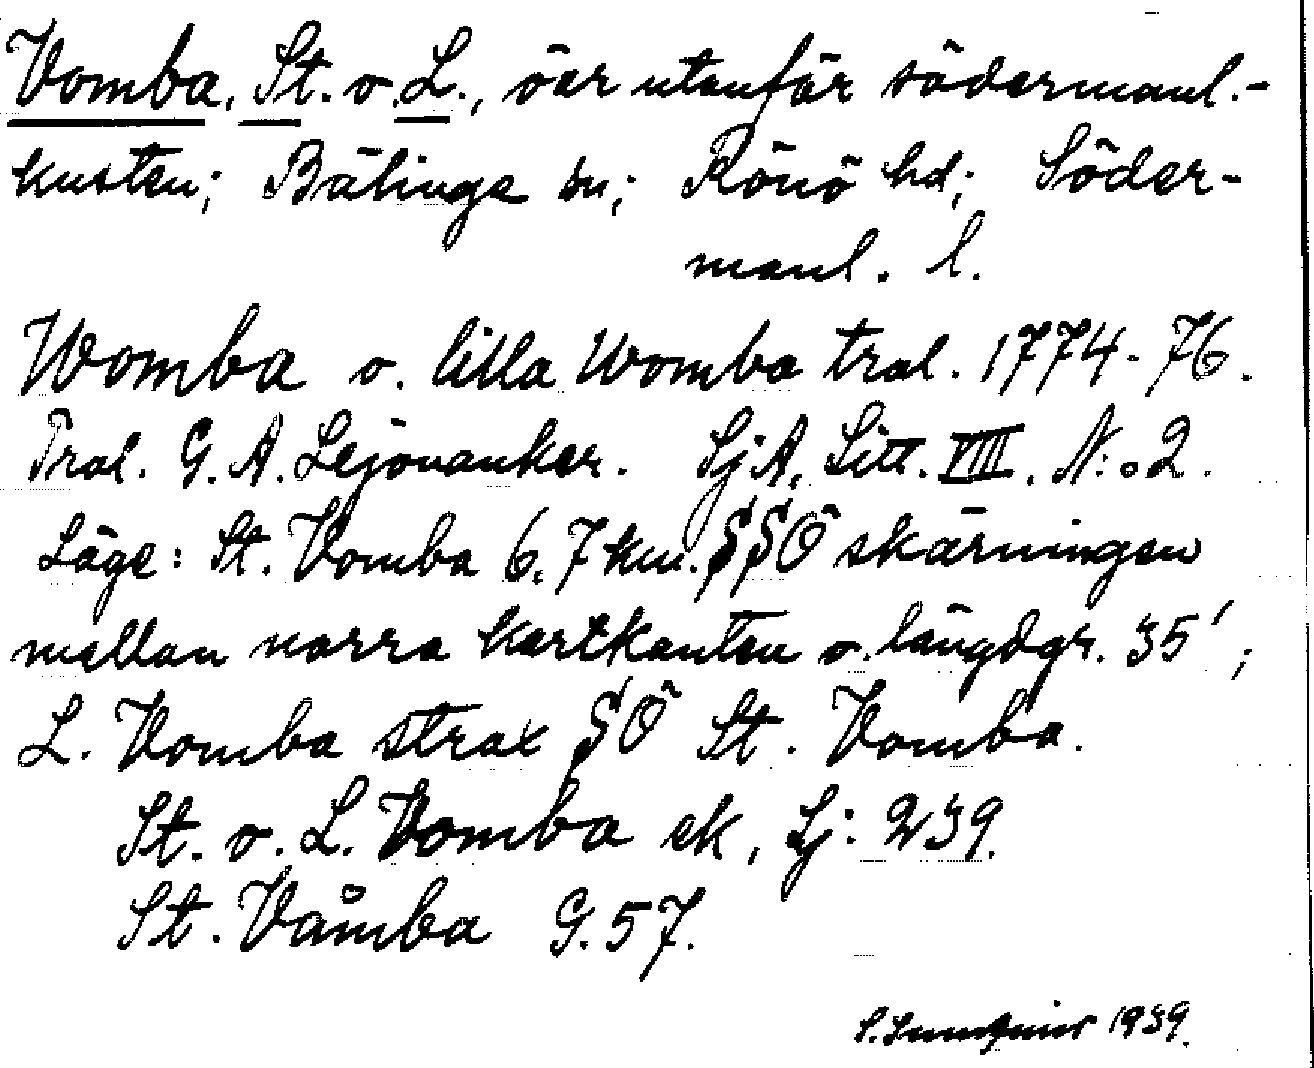 Vomba, St. o. L., öar utanför södermanl.-
kusten; Bälinge sn; Rönö hd; Söder-
manl. l.
Womba o. lilla Womba tral. 1774-76.
Tral. G. A. Lejonanker. SjA, Litt. VIII. N:o 2.
Läge: St. Vomba 6.7 km. SSÖ skärningen
mellan norra kartkanten o. längdgr. 35';
L. Vomba strax SÖ St. Vomba.
St. o. L. Vomba ek, Sj: 239.
St. Våmba G. 57.
1939.